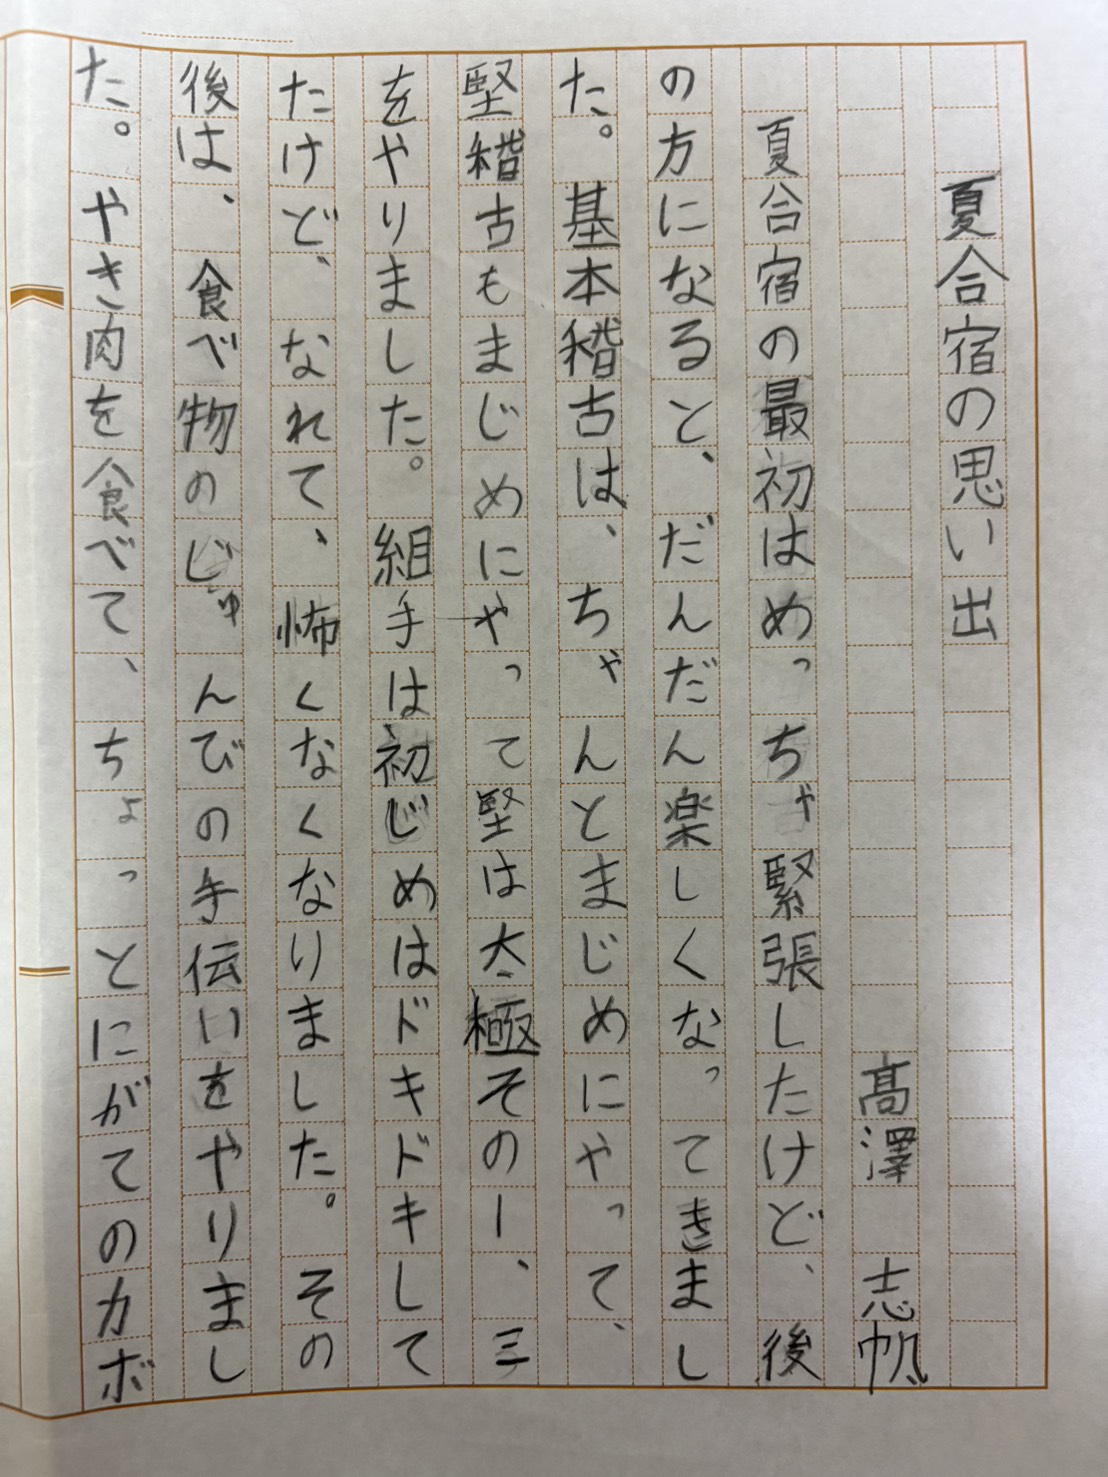 夏合宿の思い出
髙澤 志帆
夏合宿の最初はめっちゃ緊張したけど、後
の方になると、だんだん楽しくなってきまし
た。基本稽古は、ちゃんとまじめにやって、
堅稽古もまじめにやって堅は太極その一、三
をやりました。組手は初じめはドキドキして
たけど、なれて、怖くなくなりました。その
後は、食べ物のじゅんびの手伝いをやりまし
た。やき肉を食べて、ちょっとにがてのカボ